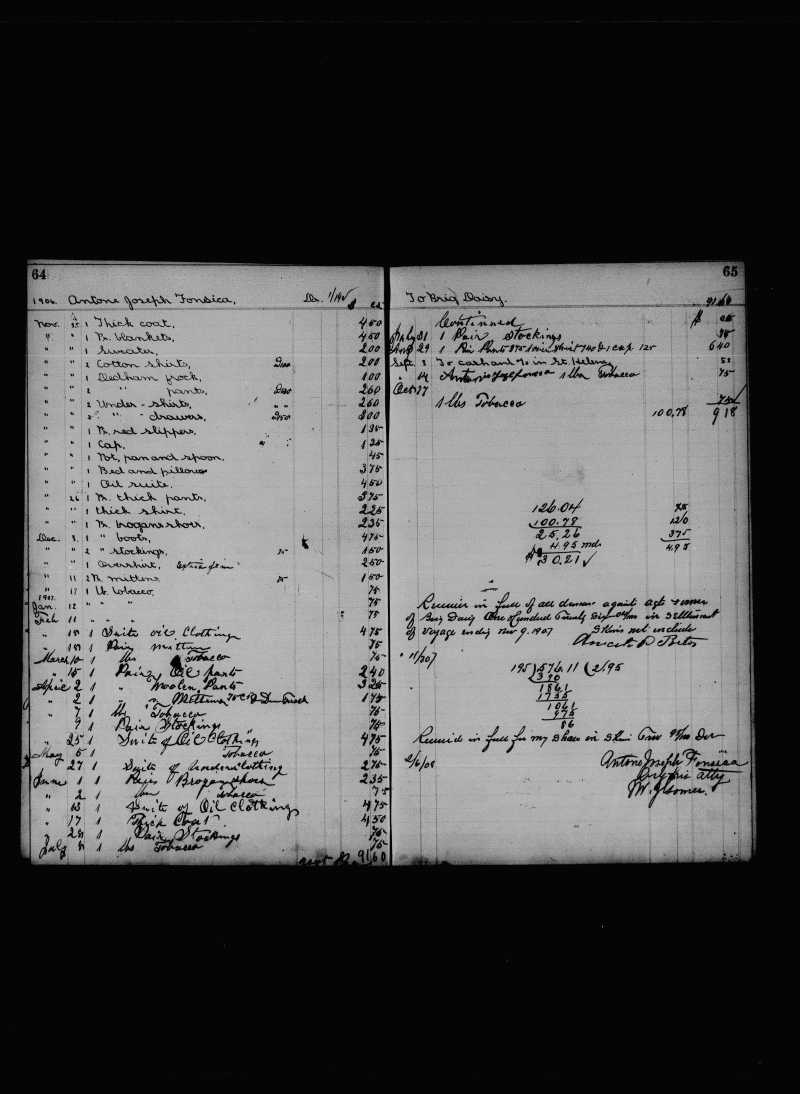 64
1906. Antone Joseph Fonsica, Dr. 1/195 $ cts
Nov. 25 1 Thick coat, 450
" " 1 Pr. blankets, 450
" " 1 Sweater, 200
" " 2 Cotton shirts, 200
" " 1 Dedham frock, 100
" " 2 " pants, 260
" " 2 Under-shirts, 260
" " 2 " drawers, 300
" " 1 Pr. red slippers, 135
" " 1 Cap. 125
" " 1 Pot, pan and spoon. 45
" " 1 Bed and pillow 375
" " 1 Oil suite, 450
" 26 1 Pr. thick pants, 375
" " 1 thick shirt, 225
" " 1 Pr. brogans shoes, 235
Dec. 3. 1 " boots, 475
" " 2 " stockings, 75 150
" " 1 Overshirt, 250
" 11 2 Pr. mittens 75 150
" 17 1 lb. tobacco, 75
1907.
Jan. 12 " " " 75
Feb 11 " " " 75
" 18 1 Suite oil Clothing 475
" 18 1 Pair mittens 75
March 10 1 lbs Tobacco 75
" 15 1 Pair Oil pants 240
April 2 1 " Woolen Pants 325
" 2 1 " Mittens 175
" 7 1 lbs Tobacco 75
9 1 Pair Stockings 75
" 25 Suite of Oil Clothings 475
May 5 1 Tobacco 75
" 27 1 Suite of Underclothing 275
June 1 1 Pair Brogan shoes 235
" 2 1 lbs tobacco 75
" 13 1 Suite of Oil Clothings 475
" 17 1 Thick Coat 450
" 28 1 Pair Stockings 75
July 8 1 lbs Tobacco 75
9160
65
To Brig Daisy. 9160
Continued $
July 31 1 Pair Stockings
Aug 29 1 Pair Pants 375 1 cap 125 640
Sept 3 To cash in St. Helena 50
" 14 1 lbs Tobacco 75
Oct 17
1 lbs Tobacco 75
100.78 918
126.04 75
100.78 120
25.26 375
4.95 mds 495
$30.21 ✓
Receive in full of all demands against agts & owner
of Brig Daisy One Hundred Twenty Six 04/100 in Settlement
of Voyage ending Nov 9. 1907 Slers not include
" 11/30/7
195) 576.11 (2.95
390
1861
1755
1061
975
86
Received in full for my Share in Slers
2/6/08 Antone Joseph Fonsica
by his atty